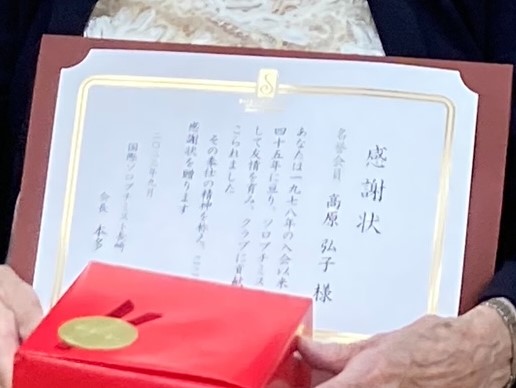 感謝状
名誉会員 高原 弘子 様
あなたは一九七八年の入会以来
四十五年に亘り、ソロプチミス
して友情を育み、クラブに貢献
こられました
その奉仕の精神を称え、ここ
感謝状を贈ります
二〇二三年九月
国際ソロプチミスト長崎
会長 本多